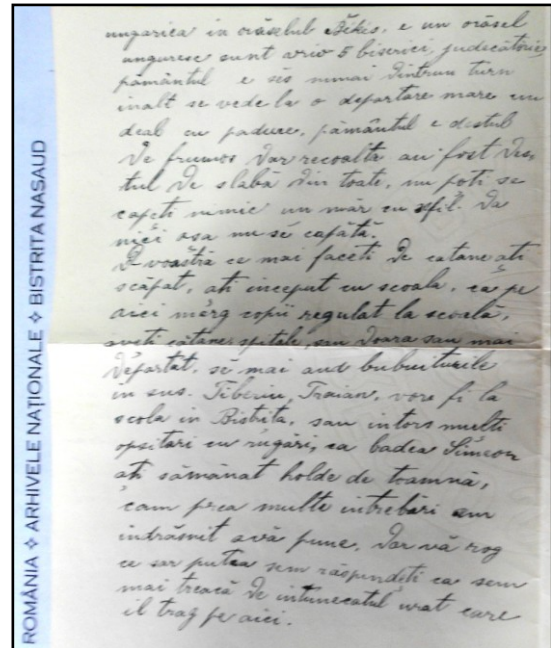 ungarica in orăselul Békis, e un orăsel
unguresc sunt vrio 5 biserici, judecătorie,
pământul e ses numai dintrun turn
inalt se vede la o departare mare un
deal cu padure, pământul e destul
de frumos dar recoalta au fost des,
tul de slabă din toate, nu poti se
capeti nimic un măr cu xfil. Da
nici asa nu se capătă.
D voastră ce mai faceti de catane ati
scăpat, ati inceput cu scoala, că pe
aici mărg copii regulat la scoală,
aveti cătane, spitale, sau doara sau mai
departat, se mai aud bubuiturile
in sus. Tiberiu, Traian, vore fi la
scola in Bistrita, sau intors multi
opsitari cu rugări, ca badea Simeon
ati sămănat holde de toamnă,
cam prea multe intrebări am
indrăsnit avă pune, dar vă rog
ce sar putea sem răspundeti ca sem
mai treacă de intunecatul urat care
il trag pe aici.
ROMÂNIA ✧ ARHIVELE NAȚIONALE ✧ BISTRITA NASAUD